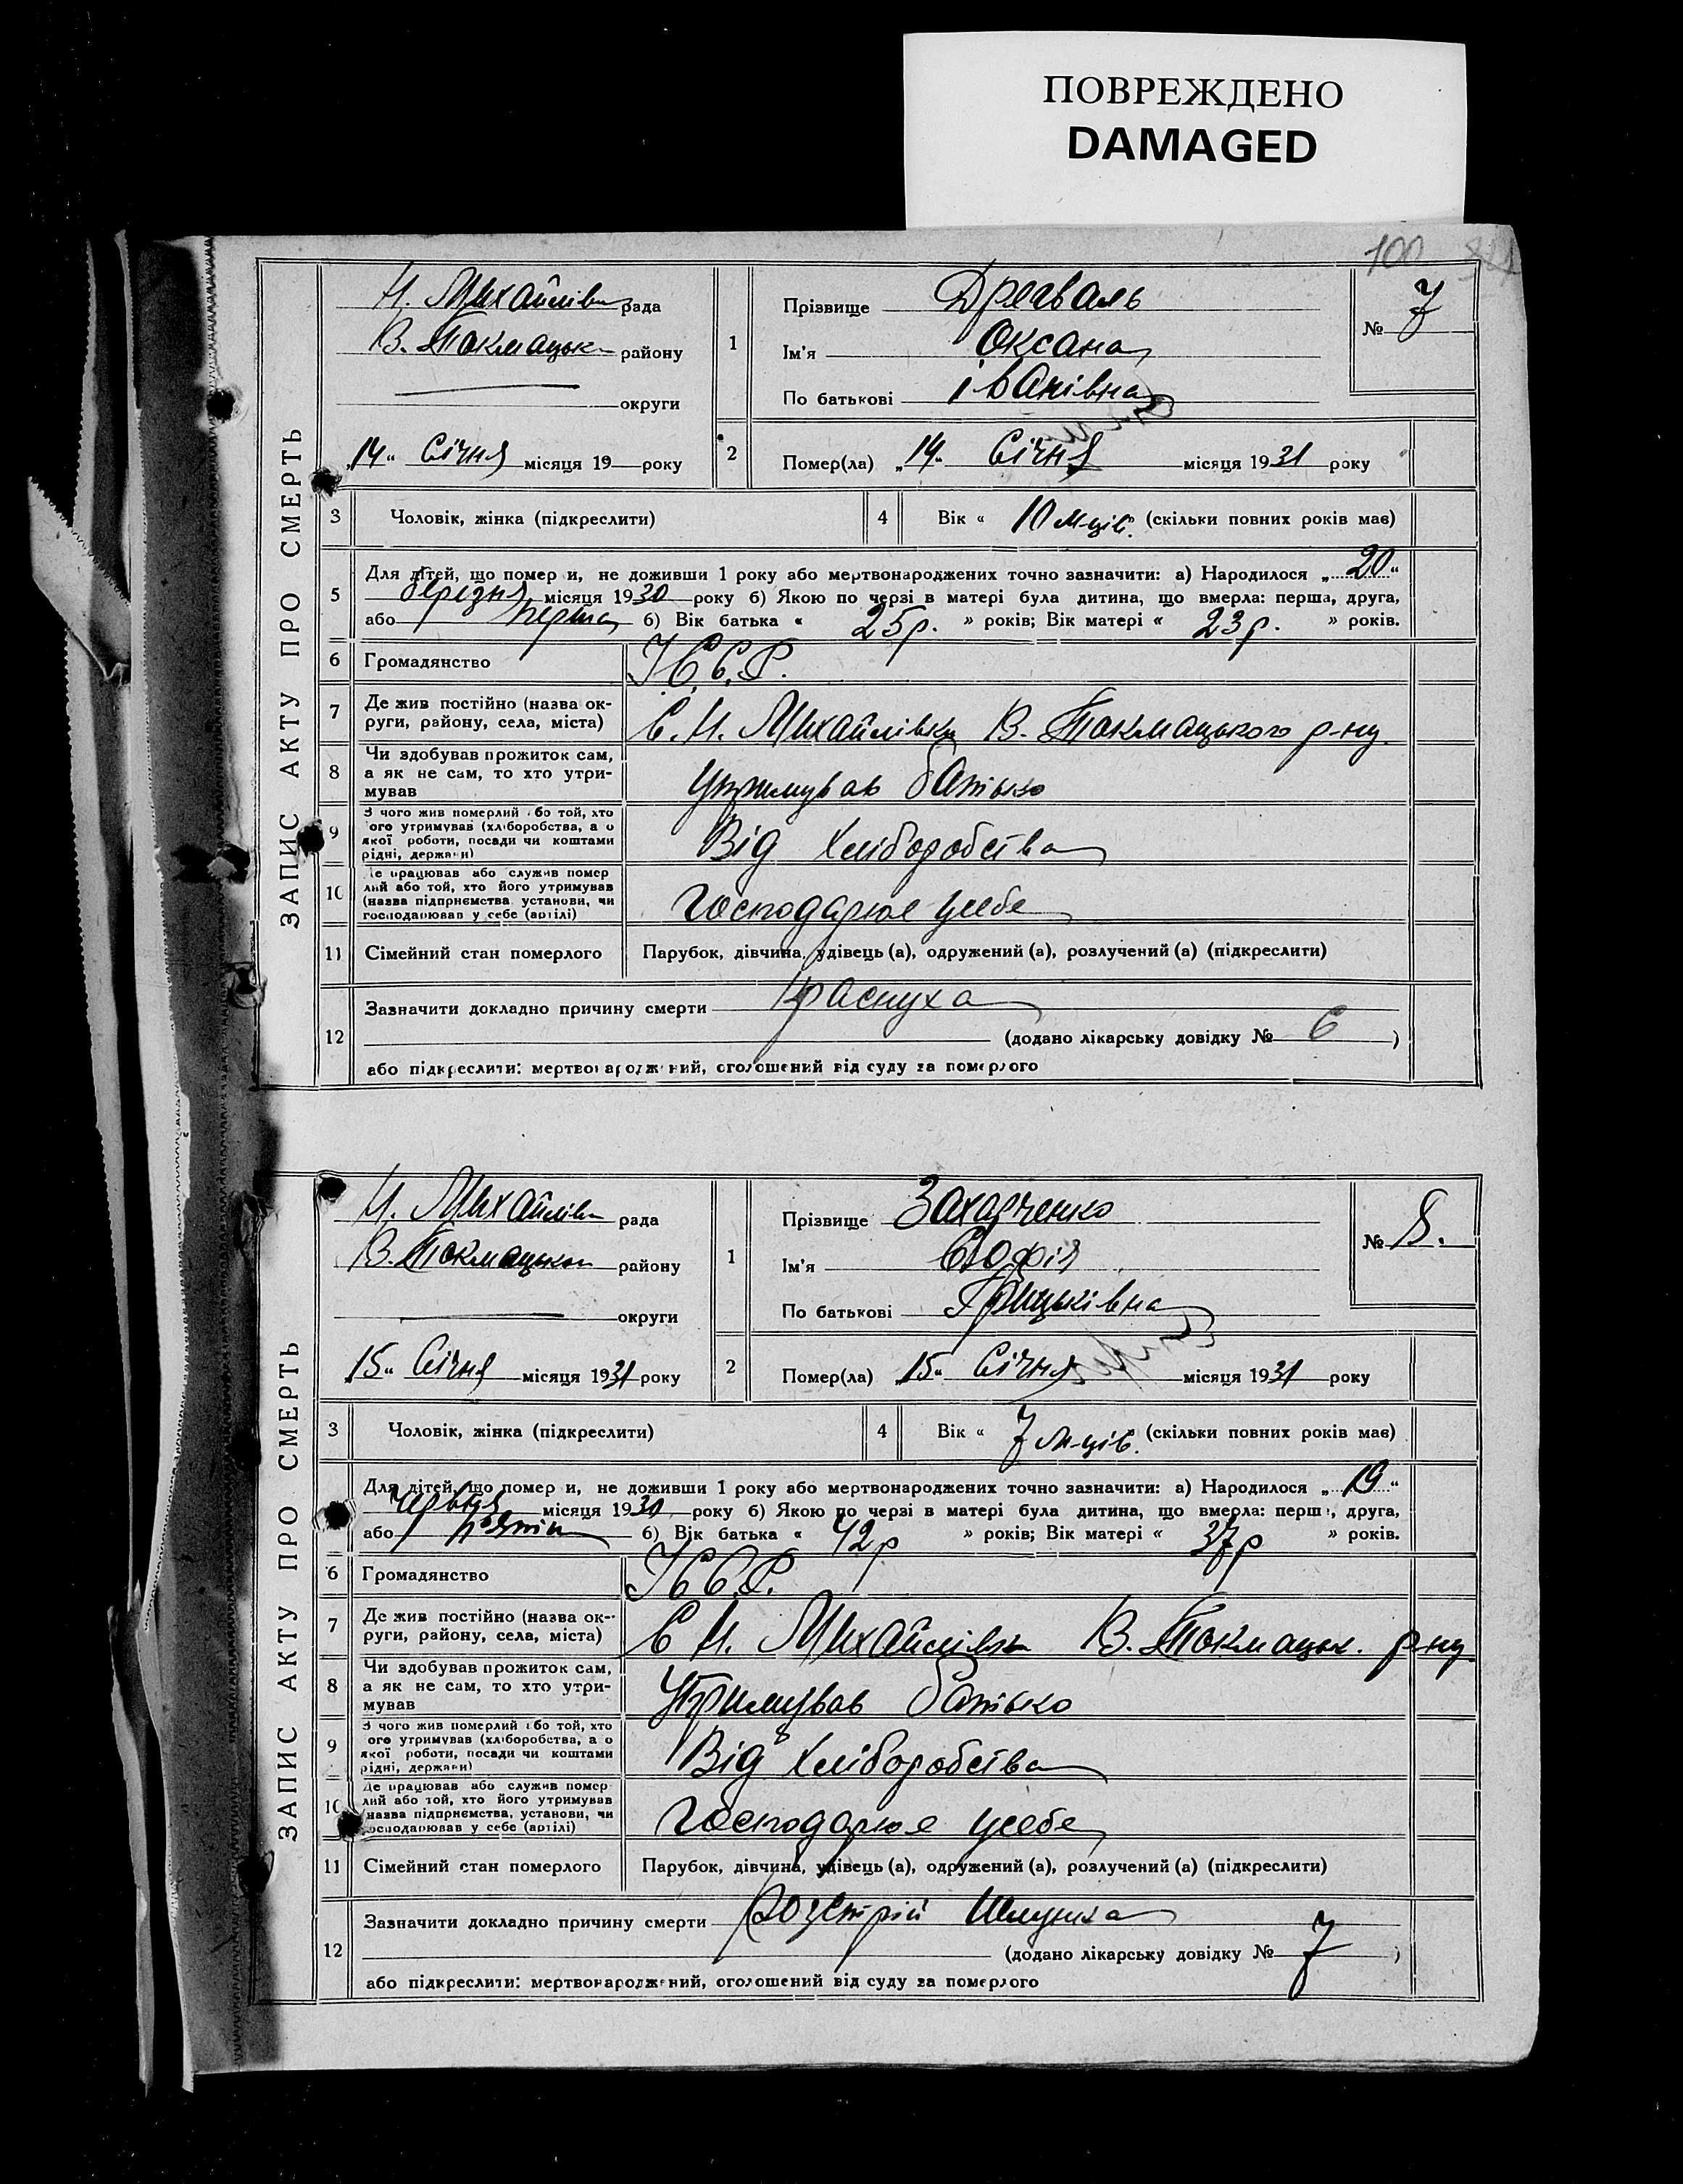 ПОВРЕЖДЕНО
DAMAGED
100
ЗАПИС АКТУ ПРО СМЕРТЬ
Н. Михайлівка рада
В. Токмацьк району
округи
„14" Січня місяця 19 року
1
Прізвище Дрегваль
Ім'я Оксана
По батькові іванівна
№ 7
2
Помер(ла) „14" Січня місяця 1931 року
3 Чоловік, жінка (підкреслити)
4 Вік « 10 м-ців. (скільки повних років має)
5
Для дітей, що помер и, не доживши 1 року або мертвонароджених точно зазначити: а) Народилося „20"
березня місяця 1930 року б) Якою по черзі в матері була дитина, що вмерла: перша, друга,
або перша б) Вік батька « 25 р. » років; Вік матері « 23 р. » років.
6 Громадянство У.С.С.Р.
7 Де жив постійно (назва ок-
руги, району, села, міста) С. Н. Михайлівка В. Токмацького р-ну.
8 Чи здобував прожиток сам,
а як не сам, то хто утри-
мував Утримував батько
9 З чого жив померлий або той, хто
ого утримував (хліборобства, а о
якої роботи, посади чи коштами
рідні, держави) Від хліборобства
10 Де працював або служив помер
лий або той, хто його утримував
(назва підприємства установи, чи
господарював у себе (артілі) Господарює усебе
11 Сімейний стан померлого Парубок, дівчина, удівець (а), одружений (а), розлучений (а) (підкреслити)
12
Зазначити докладно причину смерти Краснуха
(додано лікарську довідку № 6 )
або підкреслити: мертвонароджений, оголошений від суду за померлого
ЗАПИС АКТУ ПРО СМЕРТЬ
Н. Михайлівка рада
В. Токмацьког району
округи
„15" Січня місяця 1931 року
1
Прізвище Захарченко
Ім'я Софія
По батькові Грицьківна
№ 8.
2
Помер(ла) „15" Січня місяця 1931 року
3 Чоловік, жінка (підкреслити)
4 Вік « 7 м-ців. (скільки повних років має)
5
Для дітей, що помер и, не доживши 1 року або мертвонароджених точно зазначити: а) Народилося „19"
червня місяця 1930 року б) Якою по черзі в матері була дитина, що вмерла: перш , друга,
або б) Вік батька « 42 р » років; Вік матері « 37 р » років.
6 Громадянство У С С.Р.
7 Де жив постійно (назва ок-
руги, району, села, міста) С Н. Михайлівка В. Токмацьк. р-ну
8 Чи здобував прожиток сам,
а як не сам, то хто утри-
мував Утримував батько
9 З чого жив померлий або той, хто
ого утримував (хліборобства, а о
якої роботи, посади чи коштами
рідні, держави) Від хліборобства
10 Де працював або служив помер
лий або той, хто його утримував
назва підприємства, установи, чи
господарював у себе (артілі) Господарює усебе
11 Сімейний стан померлого Парубок, дівчина, удівець (а), одружений (а), розлучений (а) (підкреслити)
12
Зазначити докладно причину смерти Розстрій Шлунка
(додано лікарську довідку № 7 )
або підкреслити: мертвонароджений, оголошений від суду за померлого